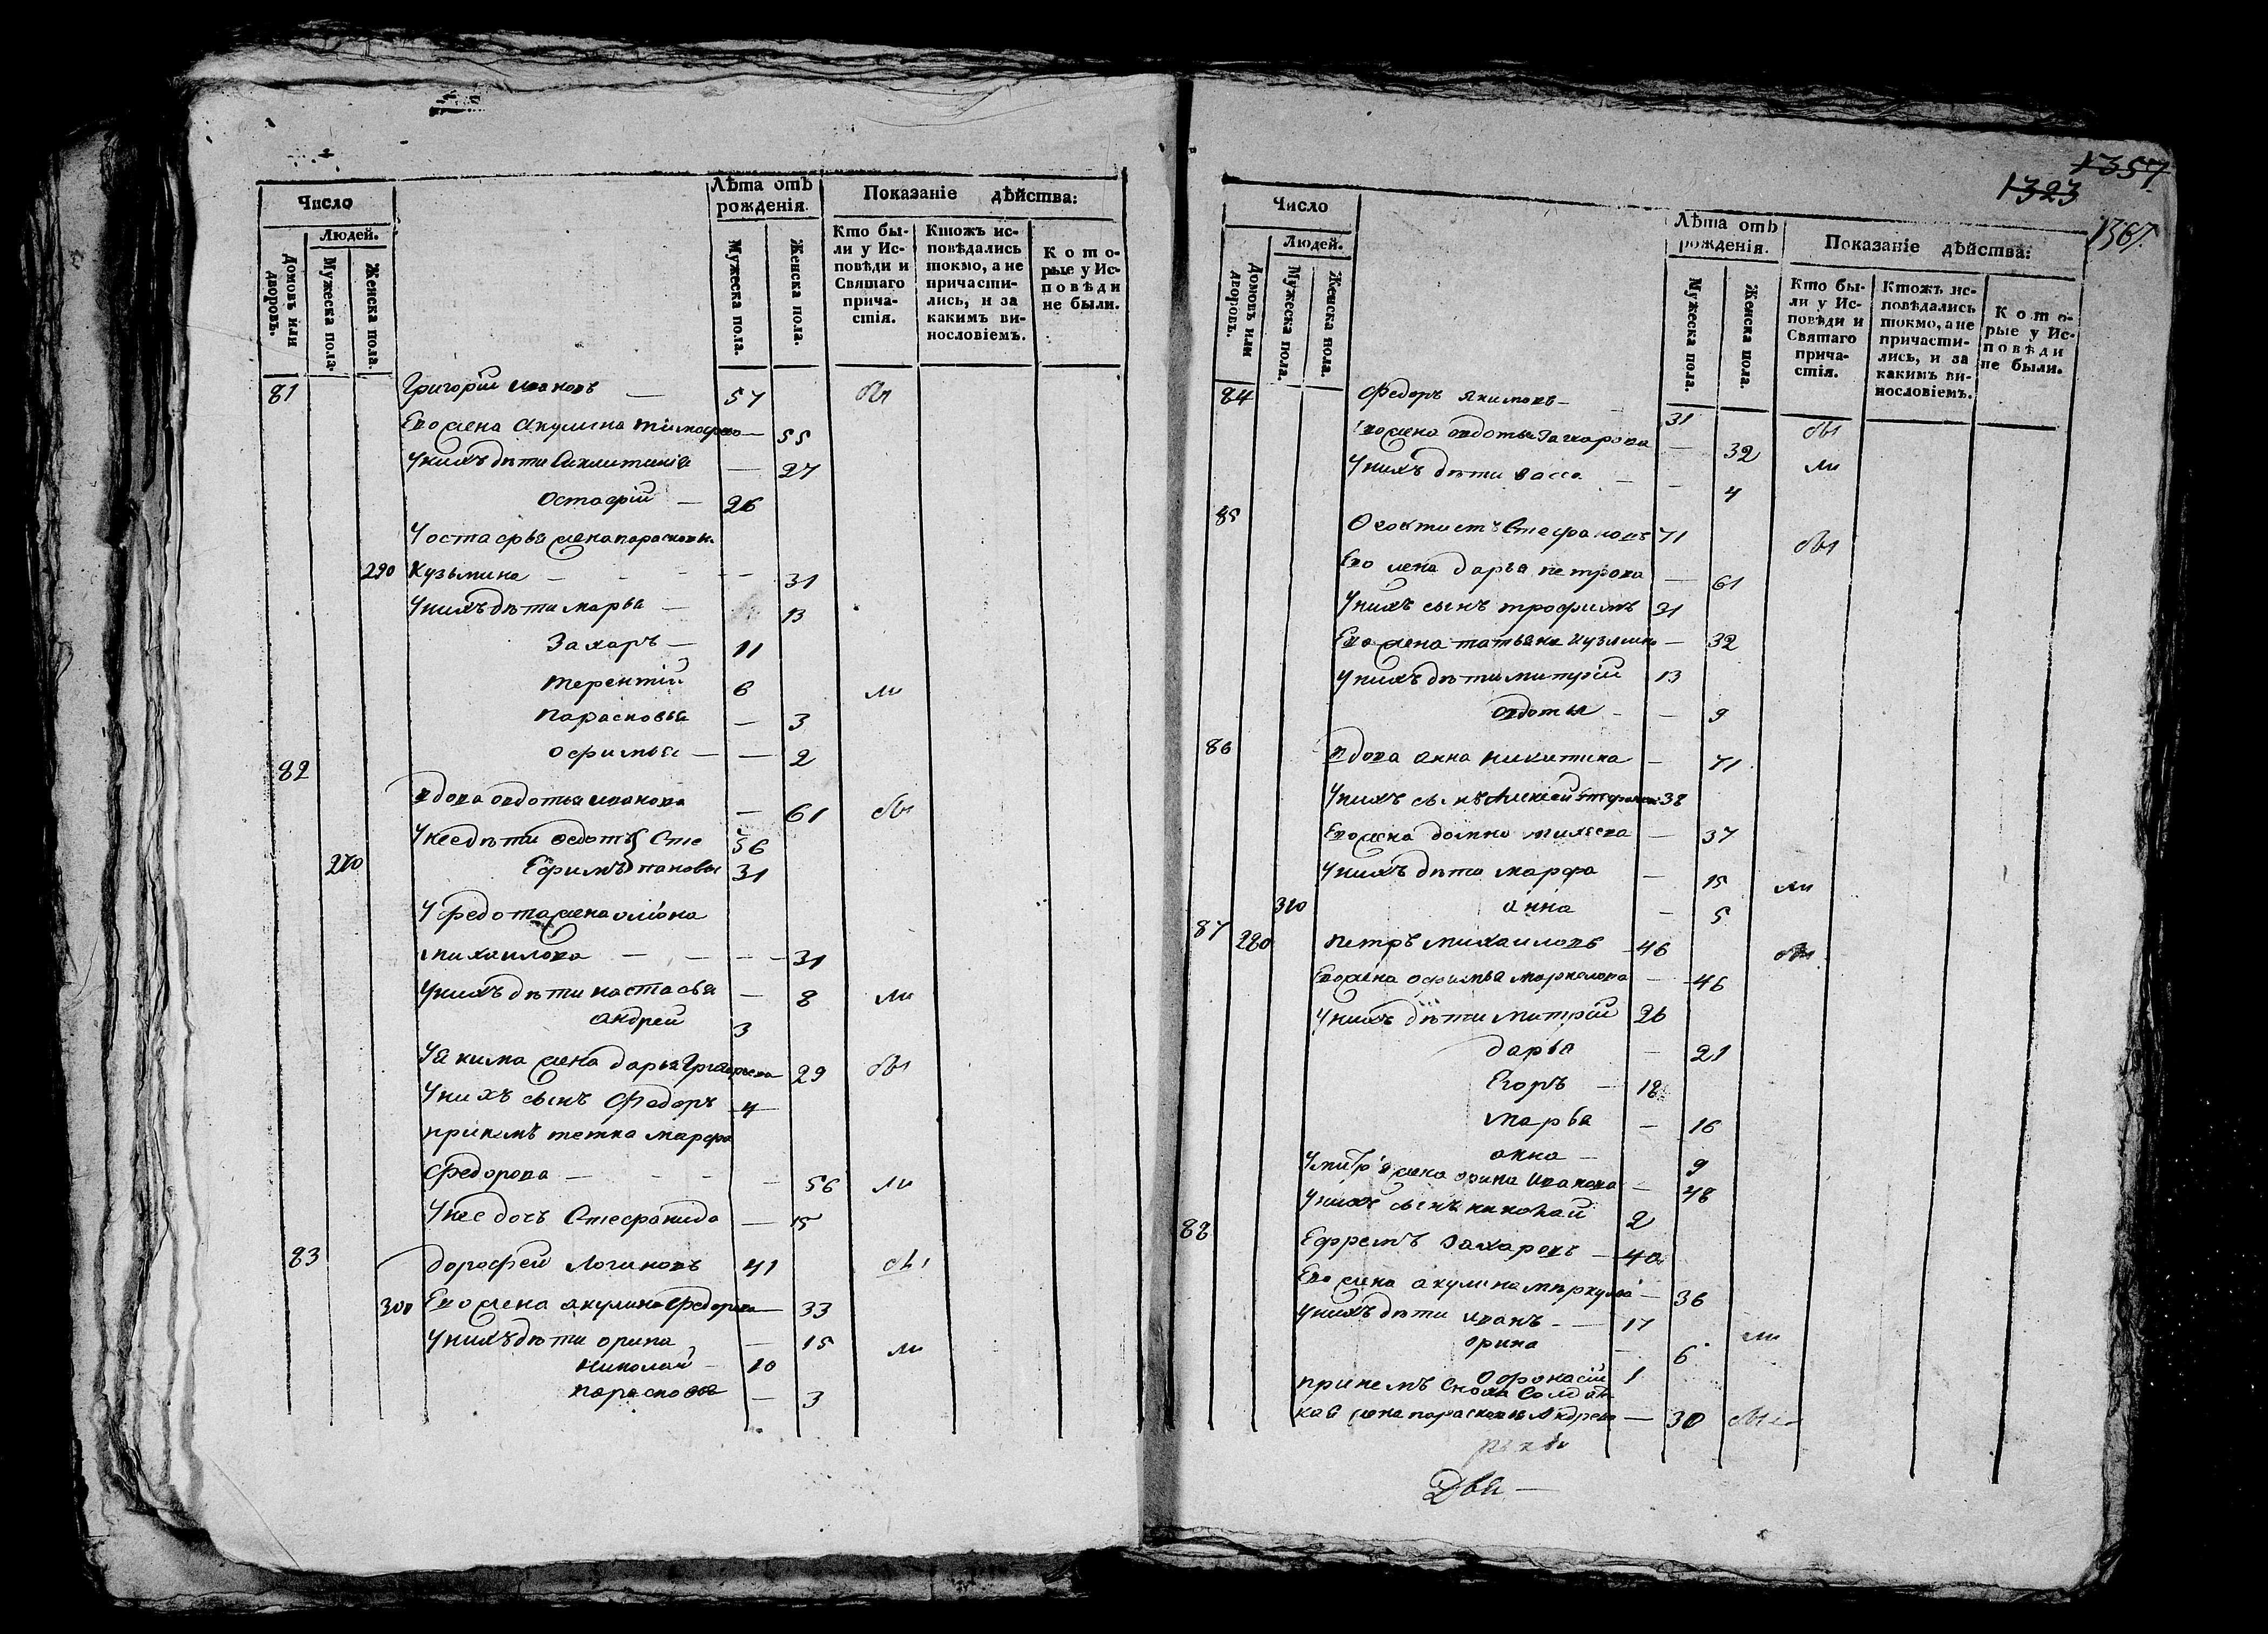 Число
Лѣта отъ рожденія.
Показаніе дѣйства:
Людей.
Домовъ или дворовъ.
Мужеска пола.
Женска пола.
Мужеска пола.
Женска пола.
Кто были у Исповѣди и Святаго причастія.
Ктожъ исповѣдались токмо, а не причастились, и за какимъ винословіемъ.
Которые у Исповѣди не были.
81 Григорій Ивановъ — 57 бы
Ево жена Акулина Тимофее — 55
У нихъ дѣти — 27
Остафій — 26
У Остафья жена Парасковья
290 Кузьмина — 31
У нихъ дѣти Марья — 13
Захаръ — 11
Терентій 6 ли
Парасковья — 3
Офимья — 2
82
вдова Овдотья Иванова — 61 бы
У нее дѣти Ѳедотъ Сте 56
270 Ефимъ пановы 31
У Федота жена
Михаилова — 31
У нихъ дѣти Настасья — 8 ли
Андрей 3
У Якима жена Дарья Григорьева 29 бы
У нихъ сынъ Федоръ 4
При немъ тетка Марфа
Федорова — 56 ли
У нее дочь Стефанида — 15
83 Дорофей Логиновъ 41 бы
300 Ево жена Акулина Федорова — 33
У нихъ дѣти Орина — 15 ли
Николай — 10
Парасковья — 3
1357
1323
1367
Число
Лѣта отъ рожденія.
Показаніе дѣйства:
Людей.
Домовъ или дворовъ.
Мужеска пола.
Женска пола.
Мужеска пола.
Женска пола.
Кто были у Исповѣди и Святаго причастія.
Ктожъ исповѣдались токмо, а не причастились, и за какимъ винословіемъ.
Которые у Исповѣди не были.
84 Федоръ Якимовъ — 31 бы
Ево жена Овдотья Захарова — 32 ли
У нихъ дѣти Васса — 4
85 Ѳеоктистъ Стефановъ 71 бы
Ево жена Дарья Петрова — 61
У нихъ сынъ Трофимъ 31
Ево жена Татьяна Кузмина — 32
У нихъ дѣти Митрій 13
Овдотья — 9
86 вдова Анна Никитина — 71
У нихъ сынъ Алексей 38
Ево жена Домна — 37
У нихъ дѣти Марфа — 15 ли
310 Анна — 5
87 280 Петръ Михаиловъ 46 бы
Ево жена Офимья Маркелова — 46
У нихъ дѣти Митрій 26
Дарья — 21
Егоръ — 18
Марья — 16
Анна — 9
У Митрія жена Орина Иванова — 48
У нихъ сынъ Николай 2
88 Ефремъ Захаровъ — 40
Ево жена Акулина Меркулова — 36
У нихъ дѣти Иванъ — 17
Орина — 6 ли
Офонасій 1
При немъ сноха солдат
кая жена Парасковья Андреева — 30 были
Двѣ —